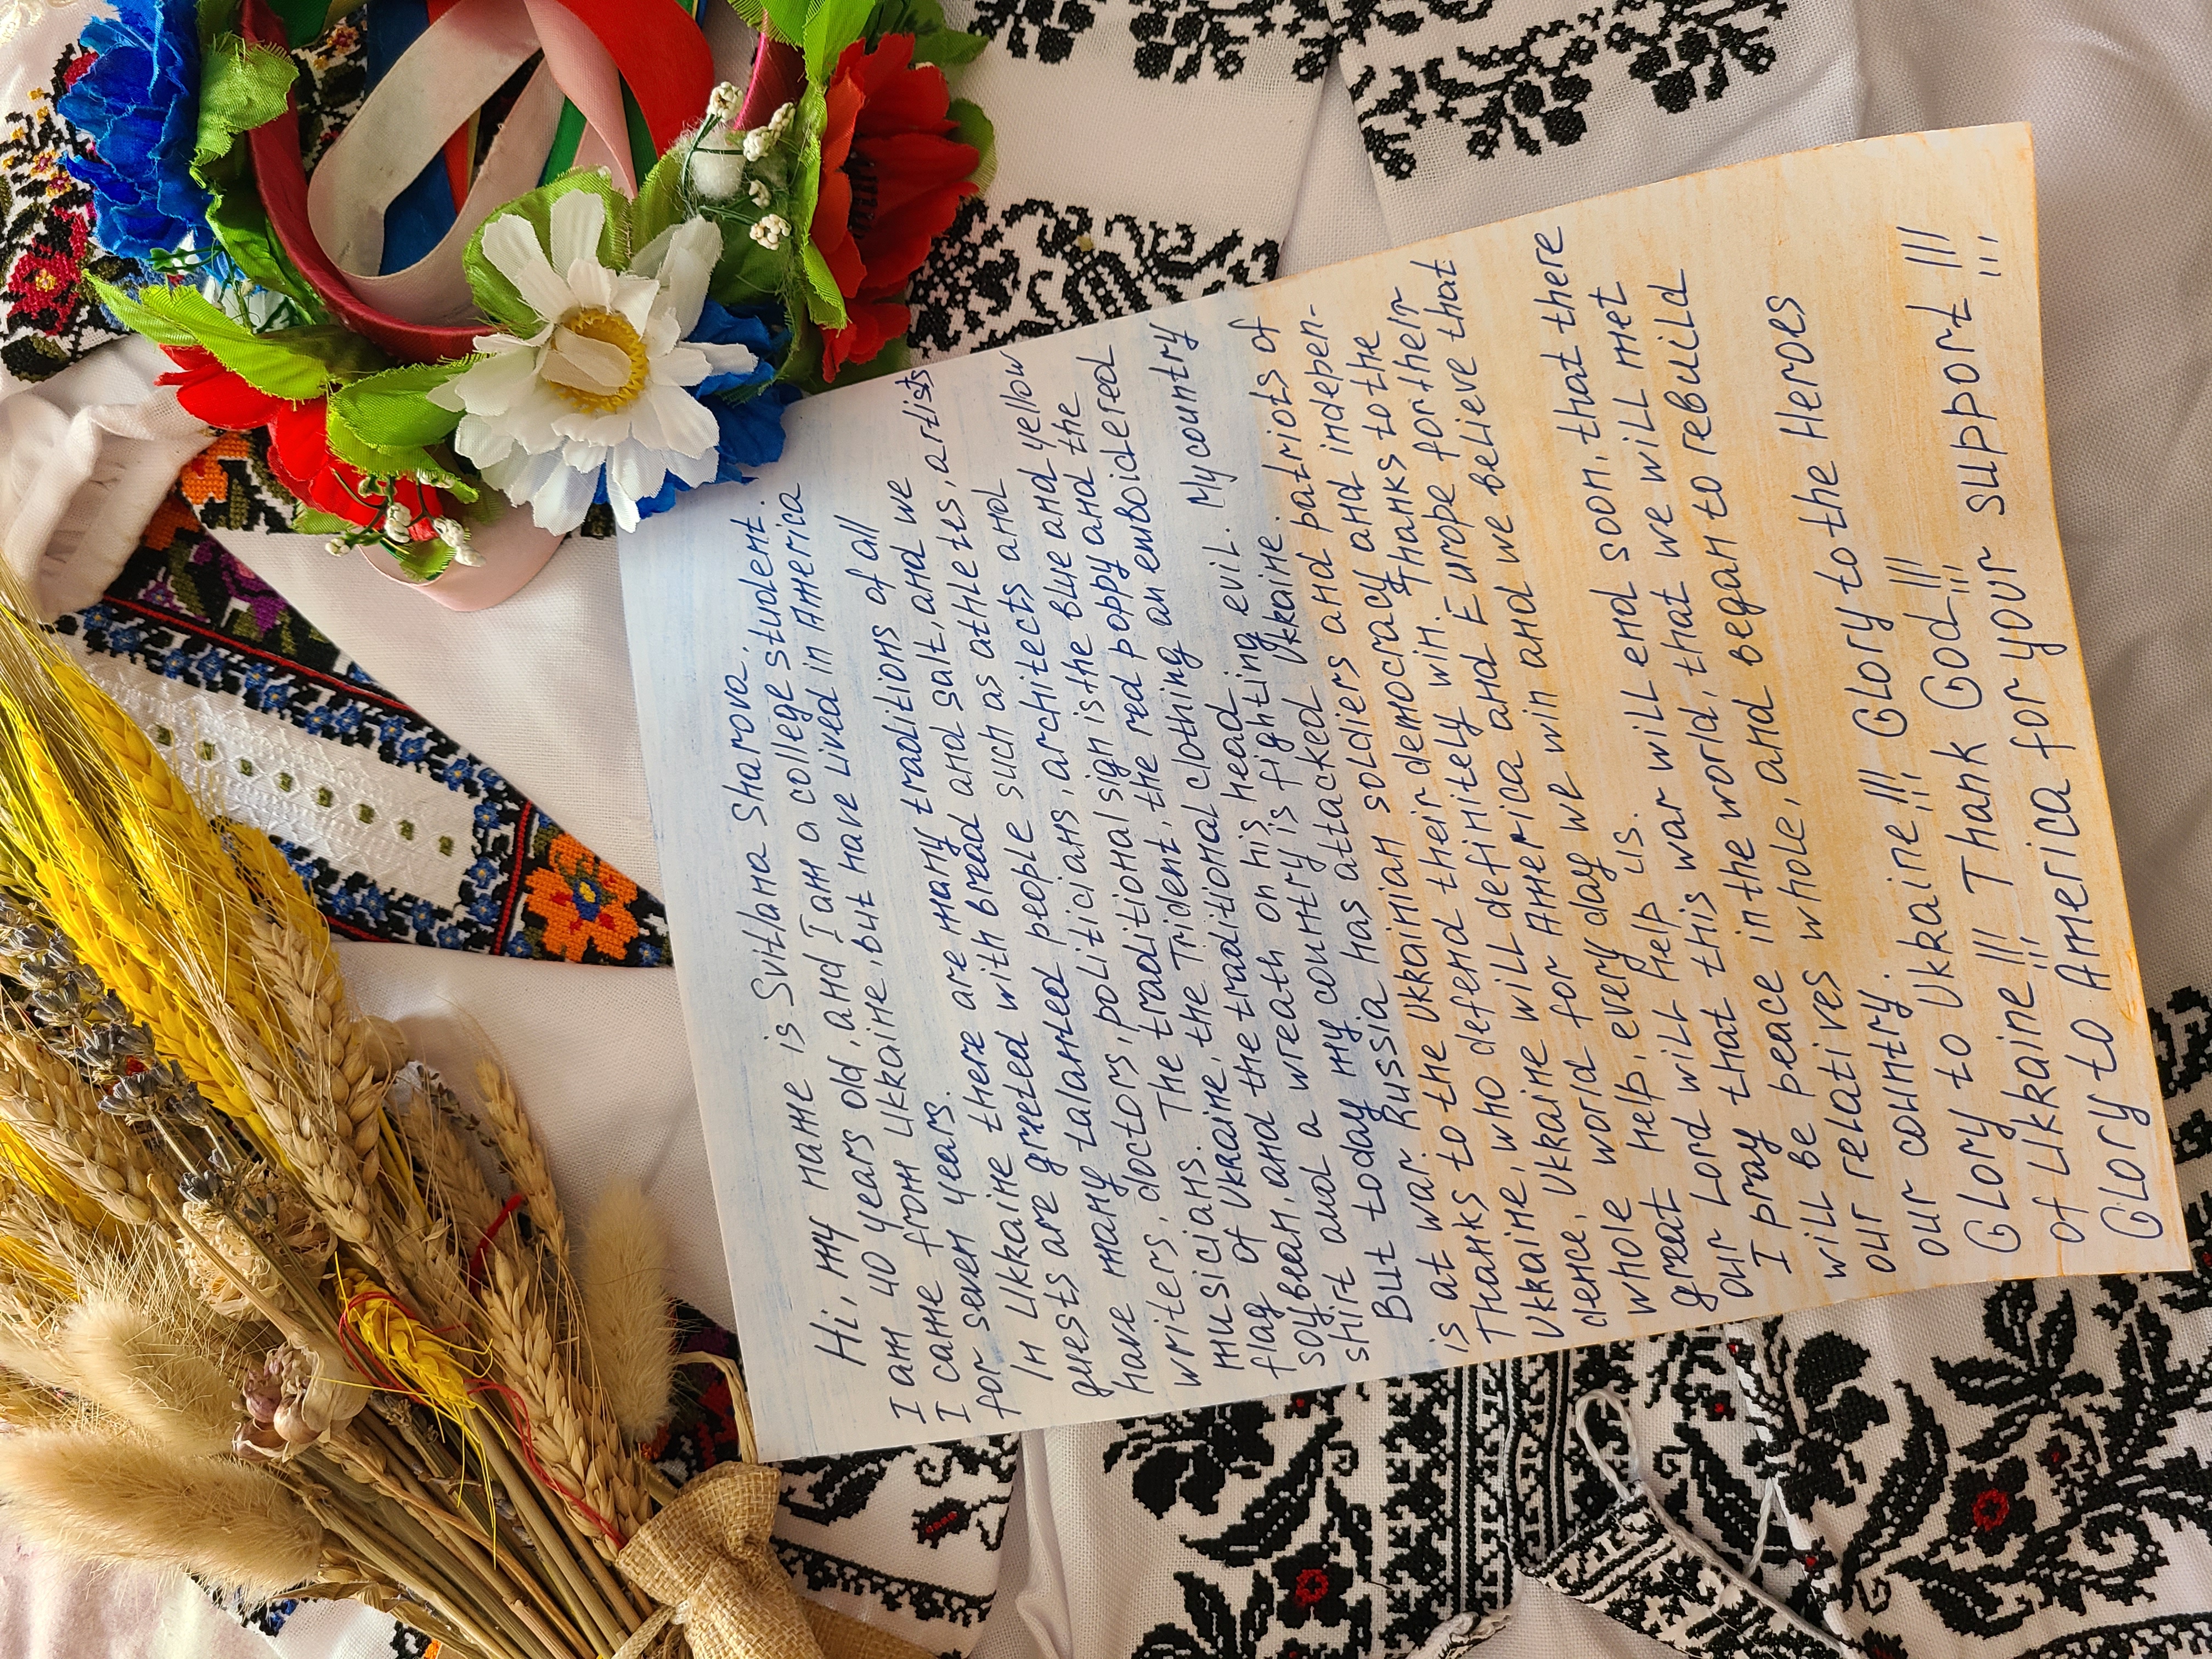 Hi, my name is Svitlana Sharova.
I am 40 years old, and I am a college student.
I came from Ukraine, but have lived in America
for seven years.
In Ukraine there are many traditions of all
guests are greeted with bread and salt, and we
have many talanted people such as athletes, artists
writers, doctors, politicians, architects and
musicians. The traditional sign is the blue and yellow
flag of Ukraine, the Trident, the red poppy and the
soybean, and the traditional clothing an emboidered
shirt and a wreath on his head.
But today my country is fighting evil. My country
is at war. Russia has attacked Ukraine.
Thanks to the Ukrainian soldiers and patriots of
Ukraine, who defend their democracy and indepen-
dence, Ukraine will definitely win. Thanks to the
whole world for America and Europe for their
great help, every day we win and we believe that
our Lord will help us.
I pray that this war will end soon, that there
will be peace in the world, that we will met
our relatives whole, and began to rebuild
our country.
Glory to Ukraine!!! Glory to the Heroes
of Ukraine!!! Thank God!!!
Glory to America for your support!!!